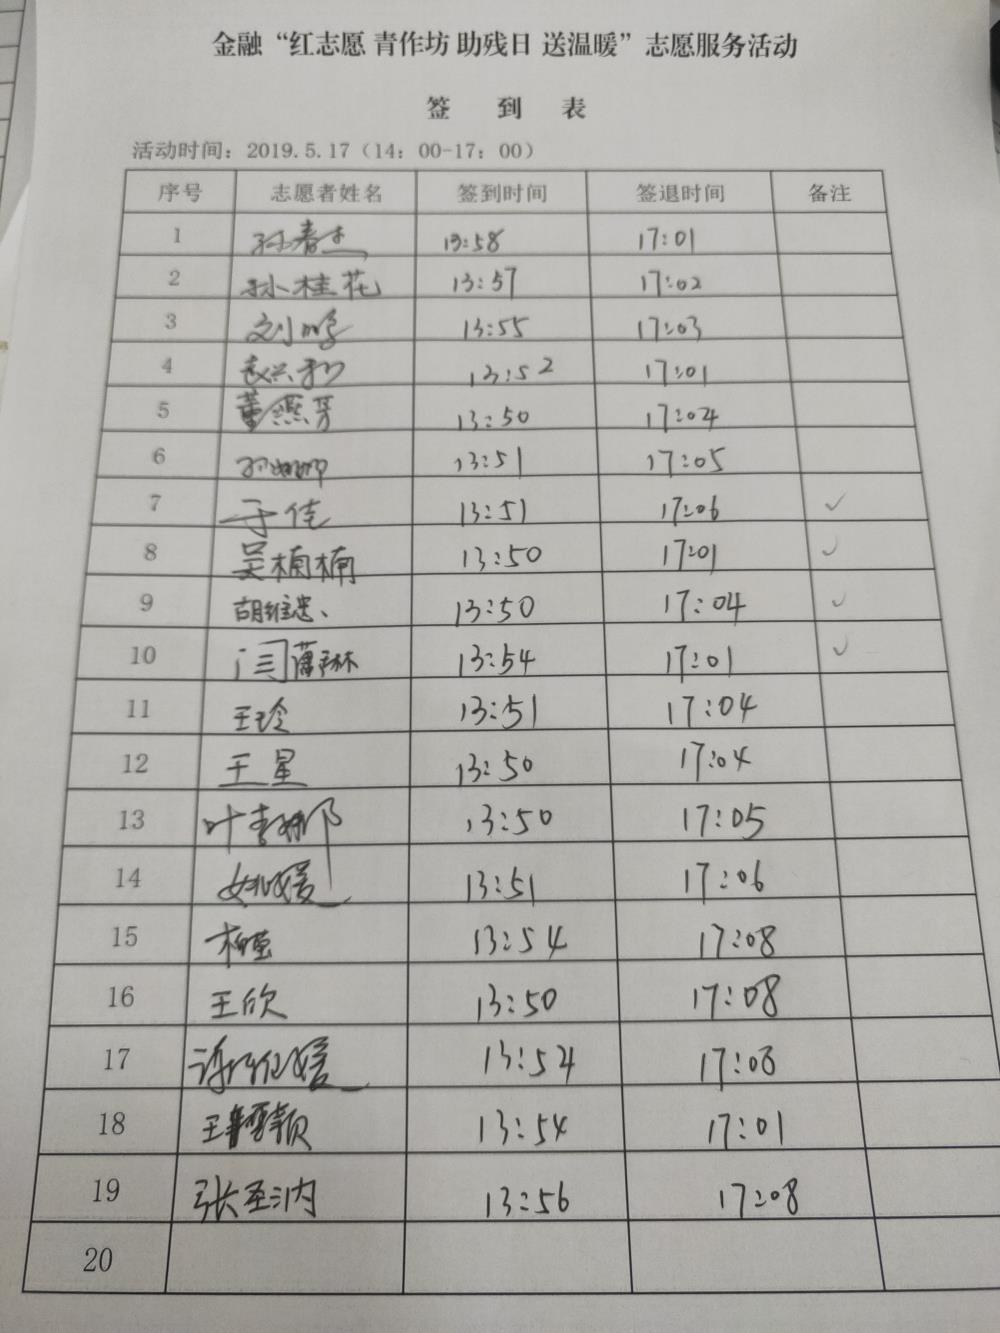 金融“红志愿 青作坊 助残日 送温暖”志愿服务活动
签 到 表
活动时间：2019.5.17（14：00-17：00）
序号 志愿者姓名 签到时间 签退时间 备注
1 孙春杰 13:58 17:01
2 孙桂花 13:57 17:02
3 刘鹏 13:55 17:03
4 13:52 17:01
5 董燕芳 13:50 17:04
6 孙娜娜 13:51 17:05
7 于佳 13:51 17:06 ✓
8 吴楠楠 13:50 17:01 ✓
9 胡维忠 13:50 17:04 ✓
10 13:54 17:01 ✓
11 王玲 13:51 17:04
12 王星 13:50 17:04
13 13:50 17:05
14 姚媛 13:51 17:06
15 13:54 17:08
16 王欣 13:50 17:08
17 13:54 17:08
18 13:54 17:01
19 13:56 17:08
20